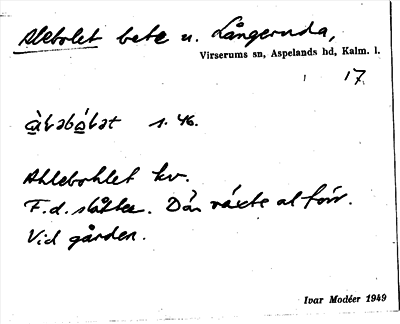 Alebolet bete u. Långeruda,
Virserums sn, Aspelands hd, Kalm. l.
17
s. 46.
Ahlebohlet kv.
F.d. slåtter. Där växte al förr.
Vid gården.
Ivar Modéer 1949